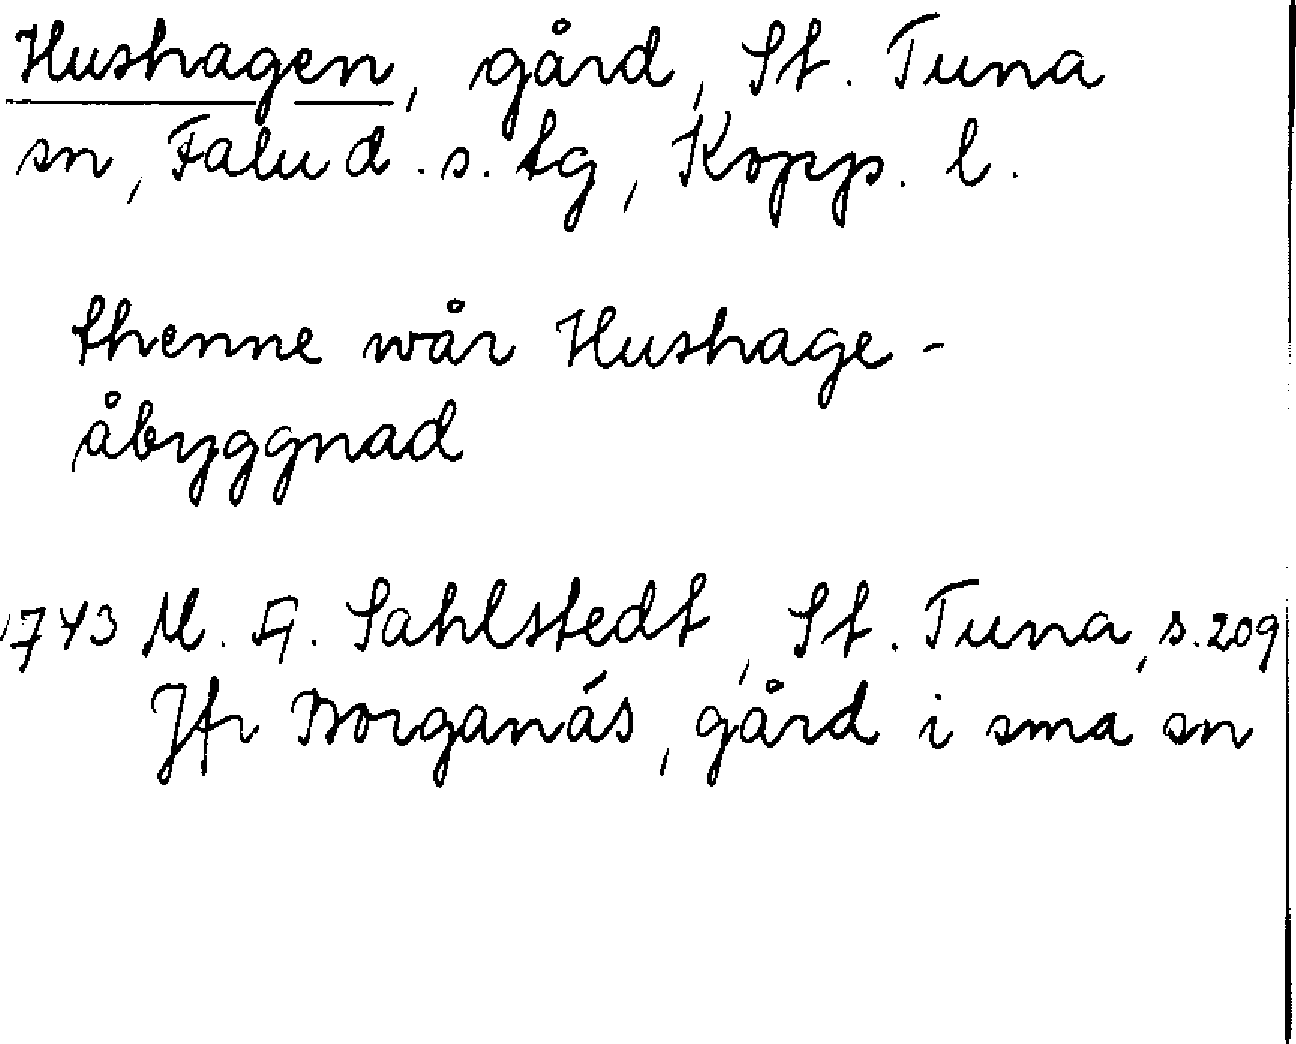 Hushagen, gård, St. Tuna
sn, Falu d. s. tg, Kopp. l.
thenne wår Hushage-
åbyggnad
1743 M. A. Sahlstedt, St. Tuna, s. 209
Jfr Borganäs, gård i sma sn